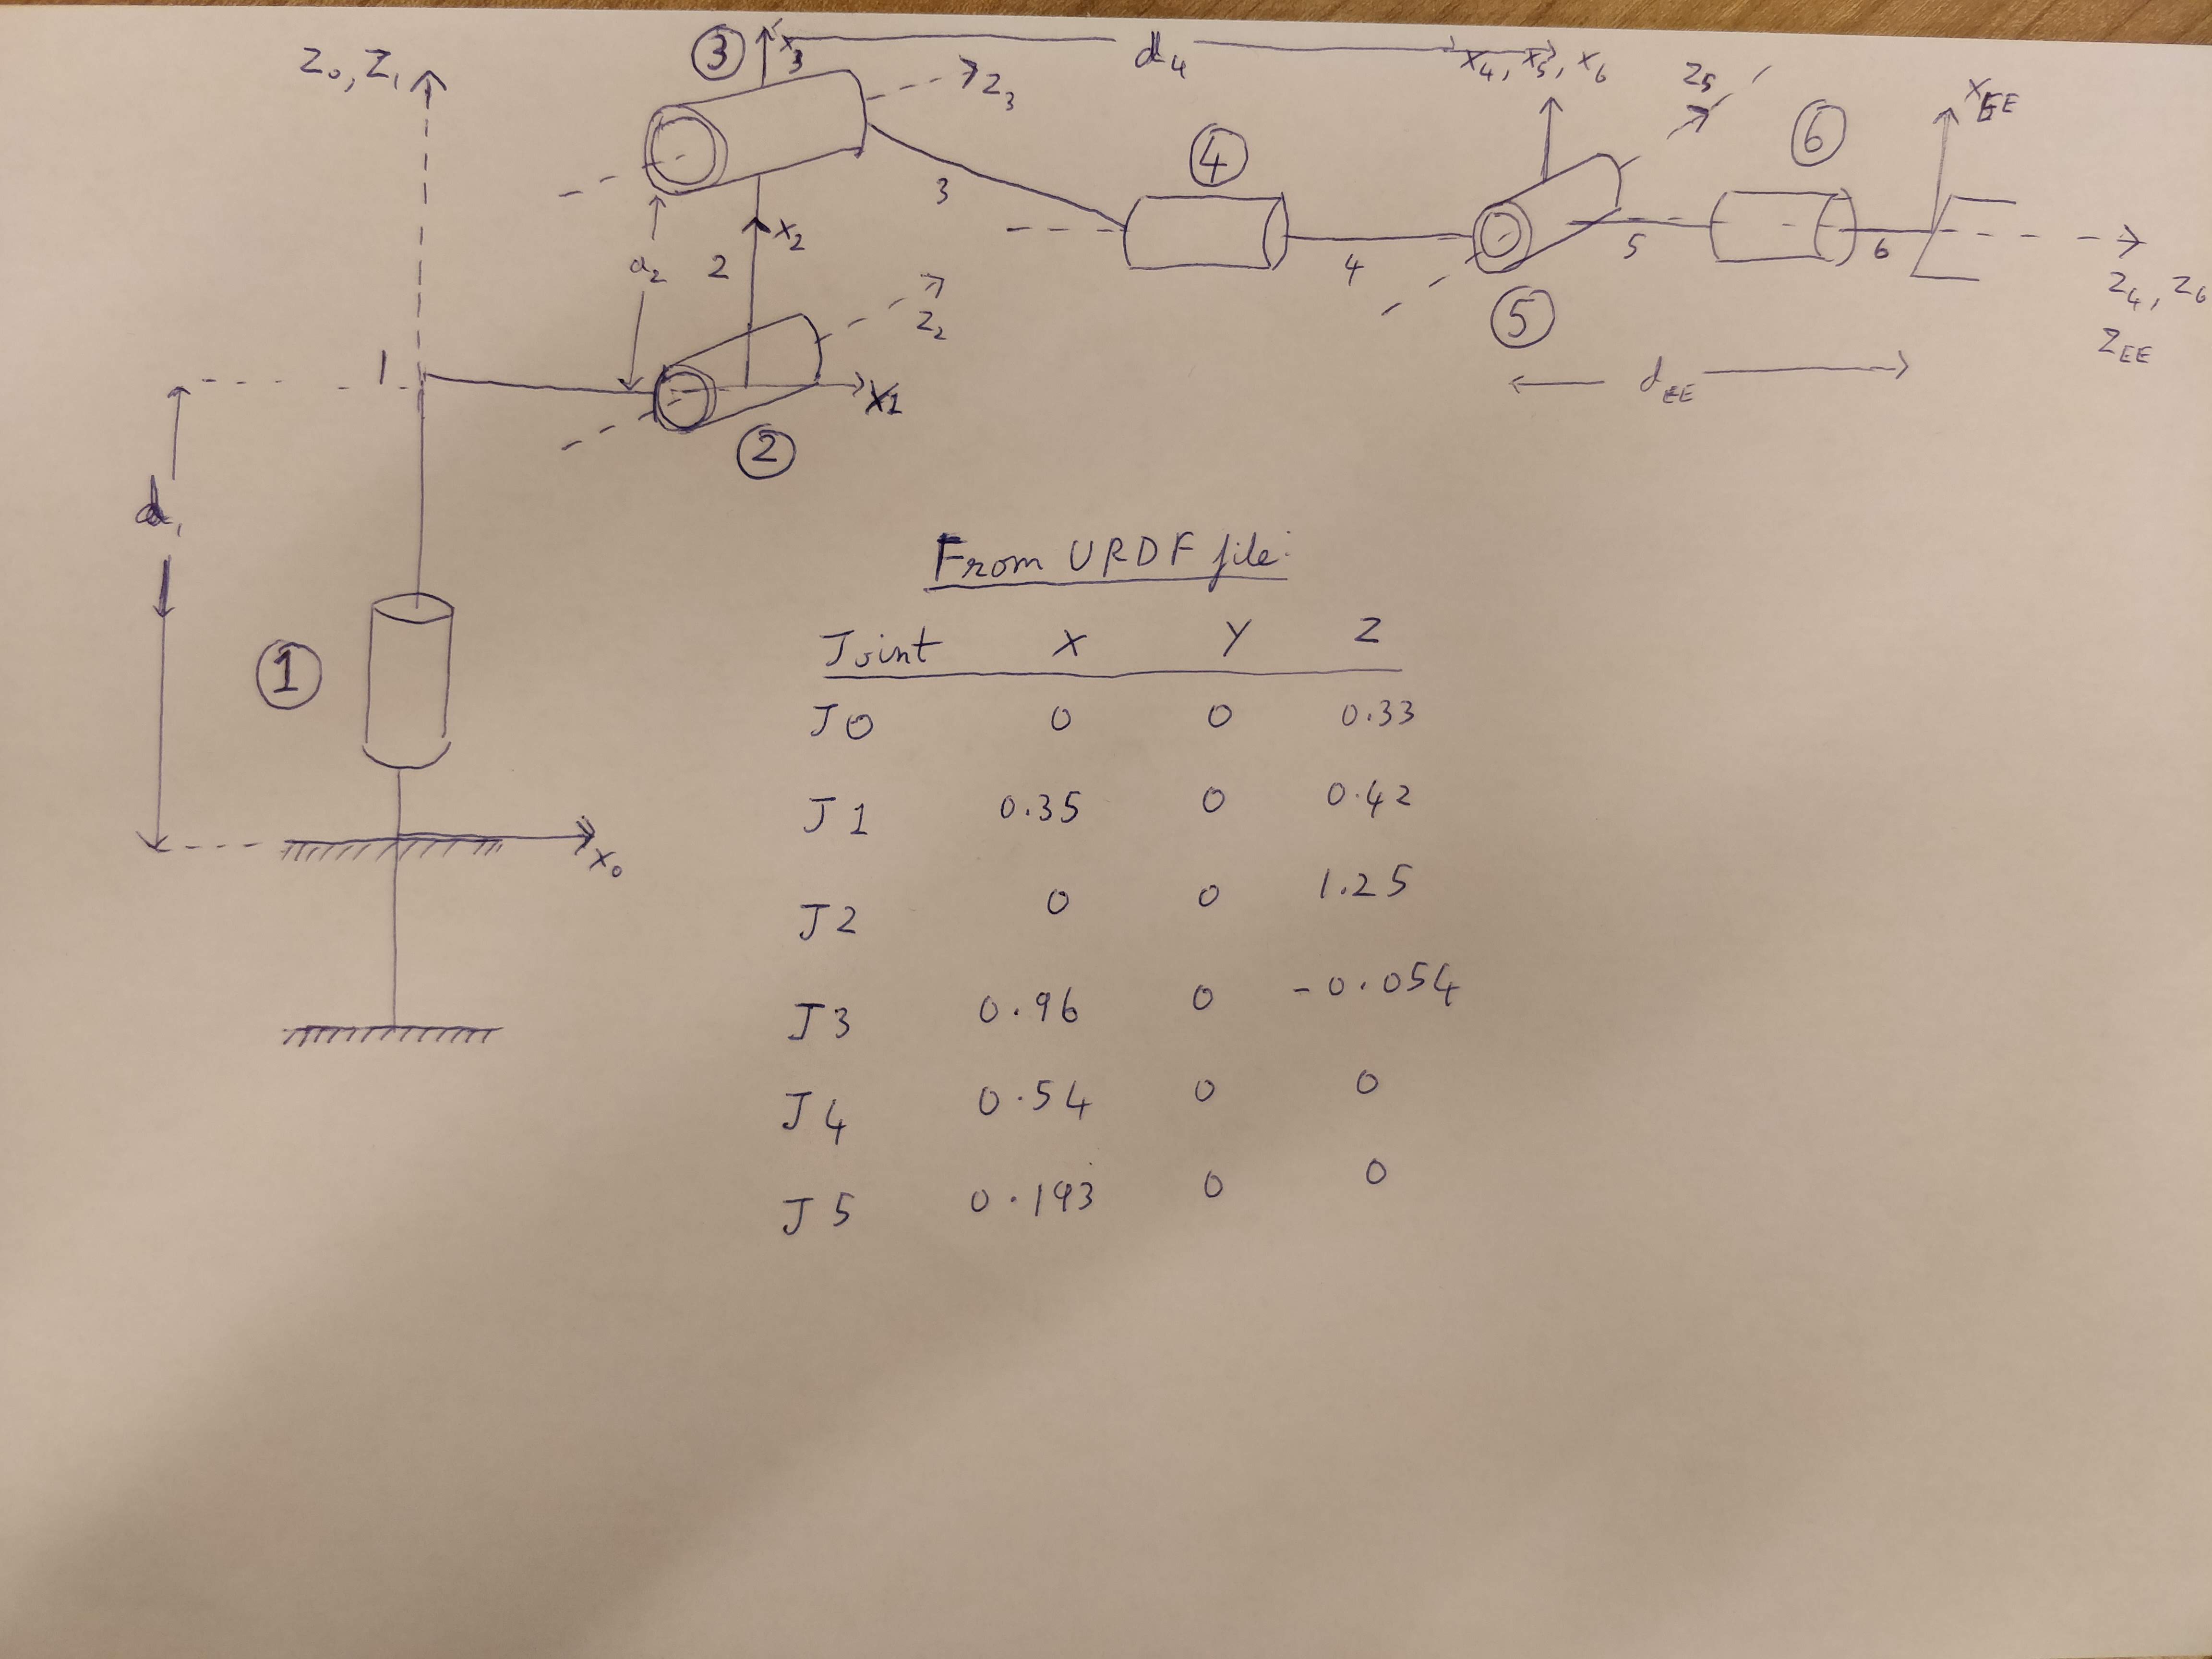 Z₀, Z₁
③
X₃
d₄
X₄, X₅, X₆
Z₅
X EE
Z₃
④
⑥
3
X₂
a₂
2
4
5
6
Z₄, Z₆
Z EE
Z₂
⑤
d EE
1
X1
②
d₁
From URDF file:
Joint X Y Z
①
J0 0 0 0.33
J1 0.35 0 0.42
X₀
J2 0 0 1.25
J3 0.96 0 -0.054
J4 0.54 0 0
J5 0.193 0 0